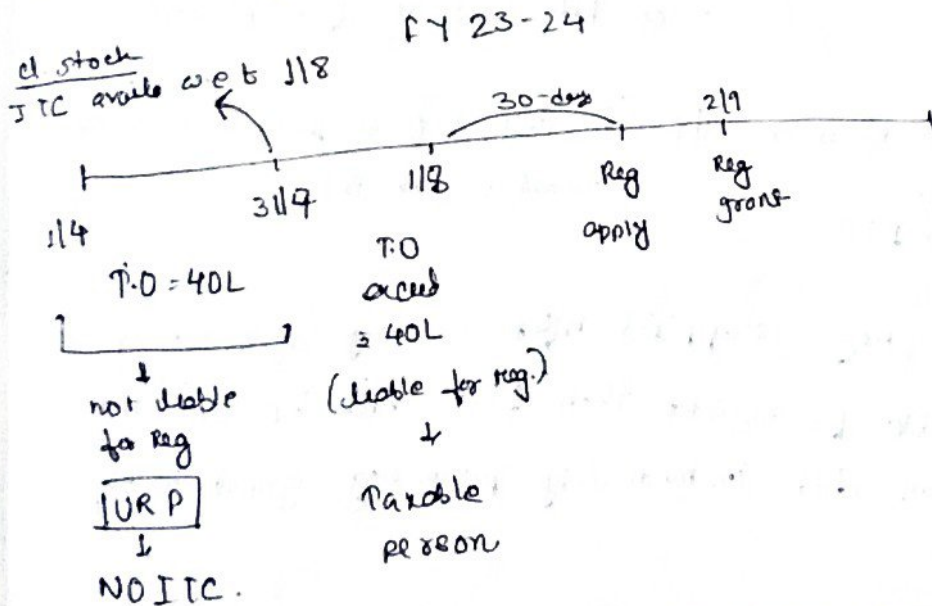 FY 23-24
cl stock
ITC avails w e t 1/8
30-day
2/9
1/4
31/7
1/8
Reg
apply
Reg
grant
T.O = 40L
T.O
exceed
= 40L
(liable for reg.)
↓
Taxable
person
↓
not liable
for Reg
URP
↓
NO ITC.